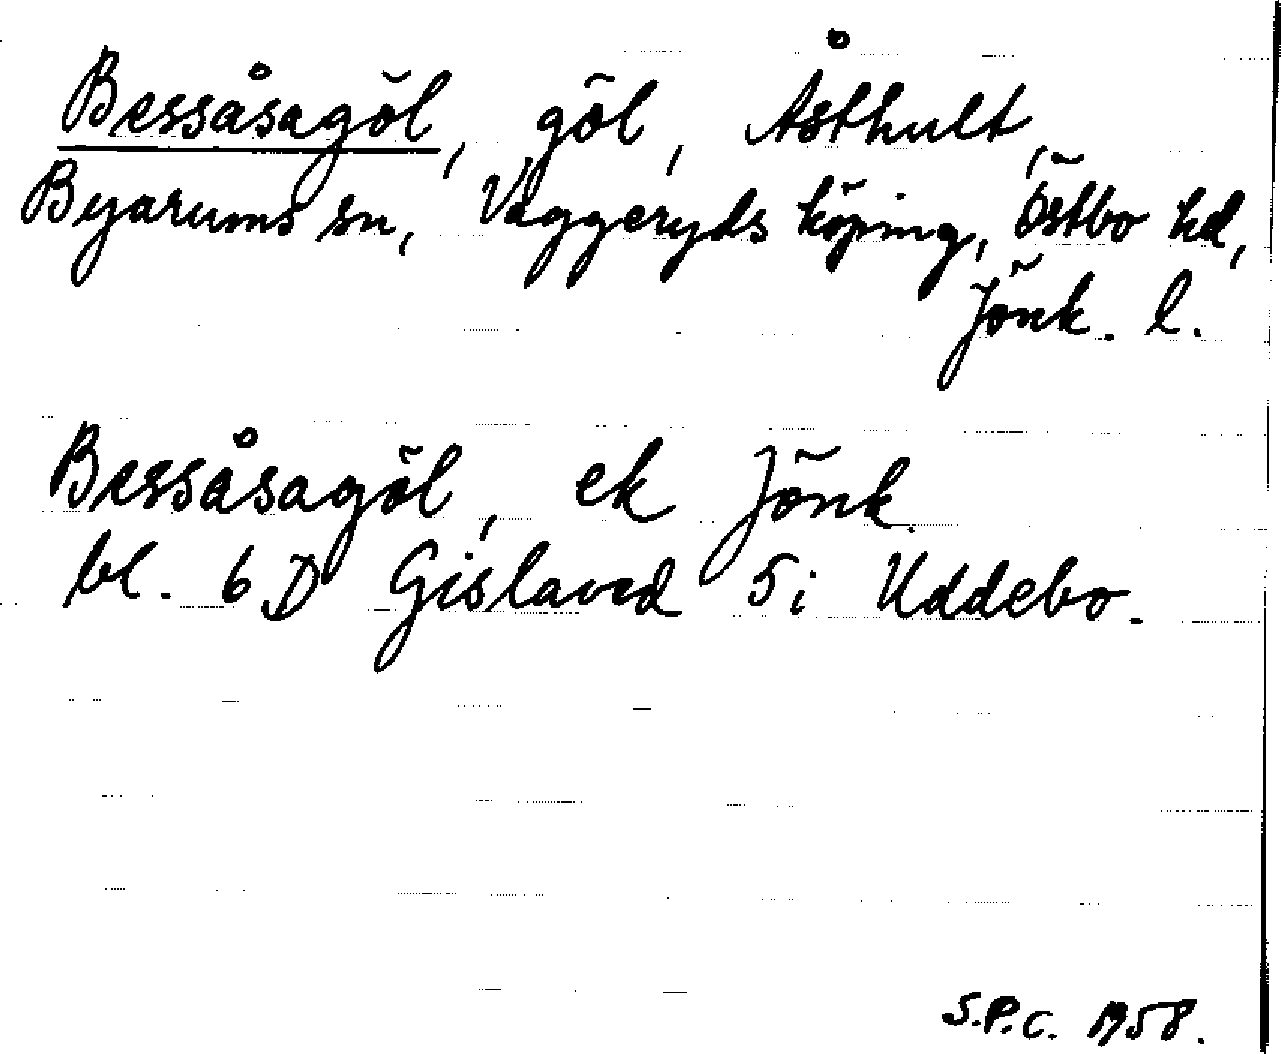 Bessåsagöl, göl, Åsthult,
Byarums sn, Vaggeryds köping, Östbo hd,
Jönk. l.
Bessåsagöl, ek Jönk.
bl. 6 D Gislaved 5 i Uddebo.
S.P.C. 1958.